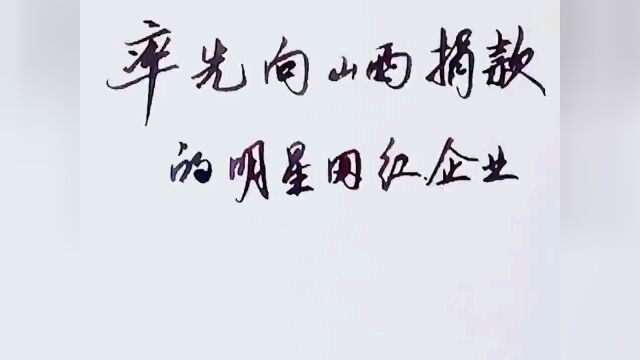 率先向山西捐款
的明星网红.企业